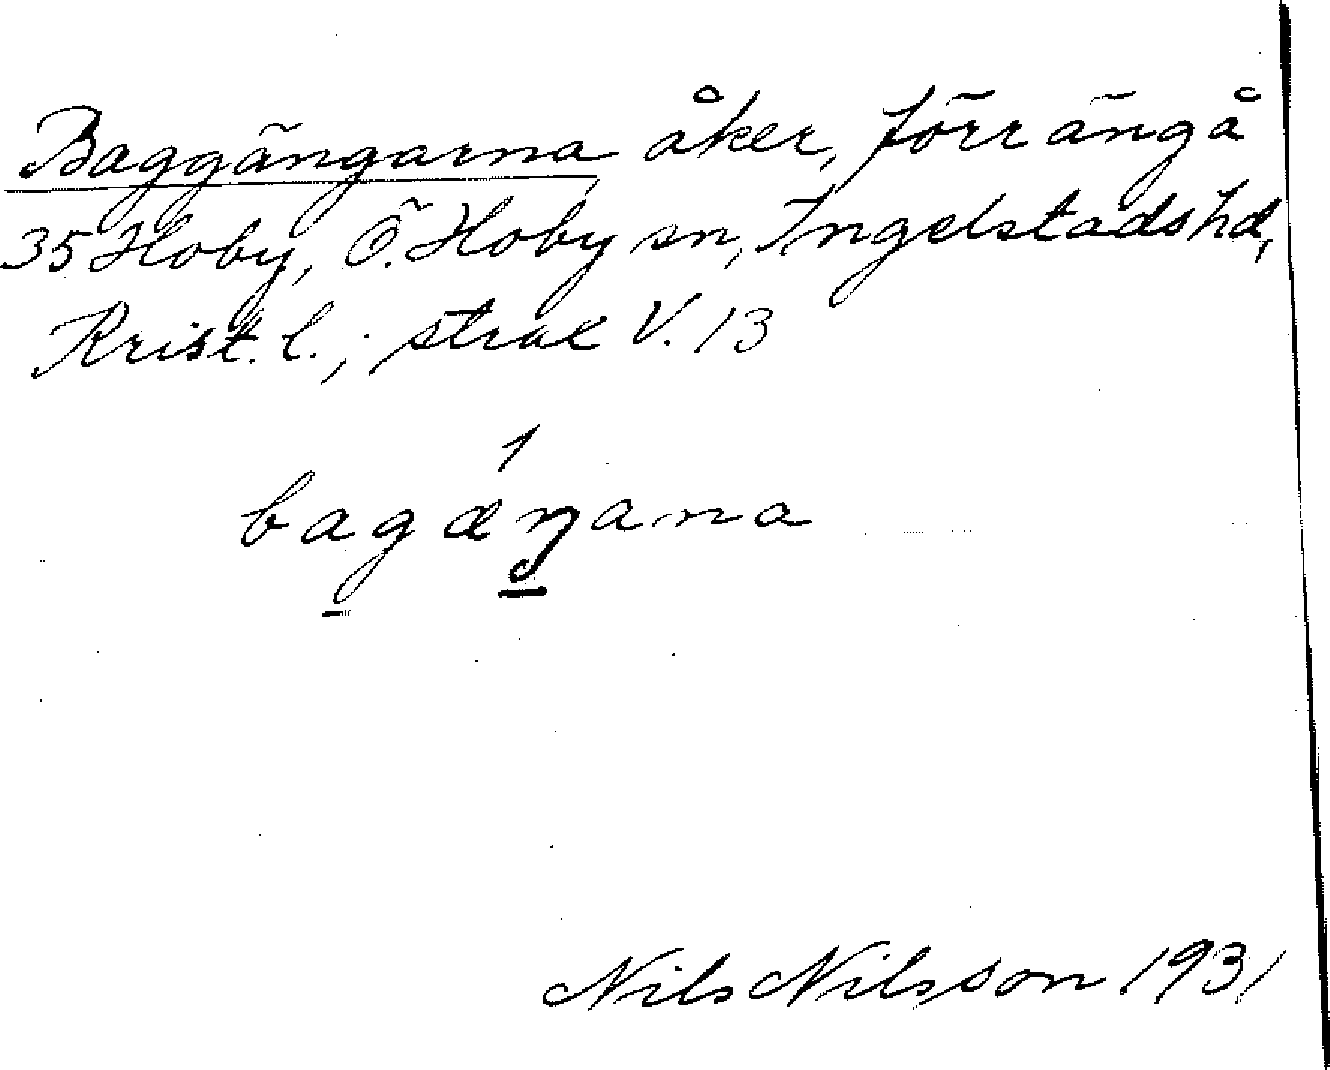 Baggängarna åker, förr äng å
35 Hoby, Ö. Hoby sn, Ingelstads hd,
Krist. l.; strax V. 13
bagæŋana
Nils Nilsson 1931